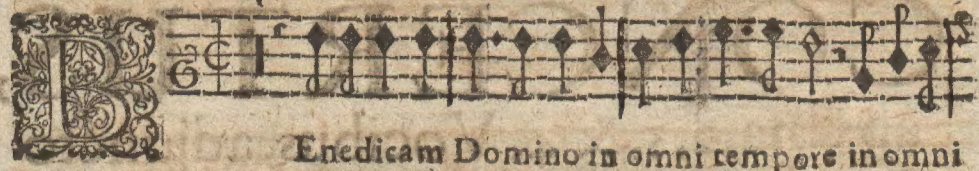 BEnedicam Domino in omni tempore in omni